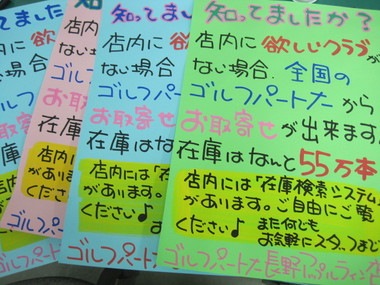 知ってましたか?
店内に欲しいクラブが
ない場合、全国の
ゴルフパートナーから
お取寄せが出来ます
在庫はなんと55万本
店内には「在庫検索システム
があります。ご自由にご覧
ください♪ また何でも
お気軽にスタッフまで
ゴルフパートナー長野
知ってました
店内に欲
ない場合
ゴルフパー
お取寄せ
在庫は
店内には「在
があります。
ください♪
ゴルフパートナ
知
店内に
ない場合
ゴルフ
お取
在庫
店内
があり
くださ
ゴルフ